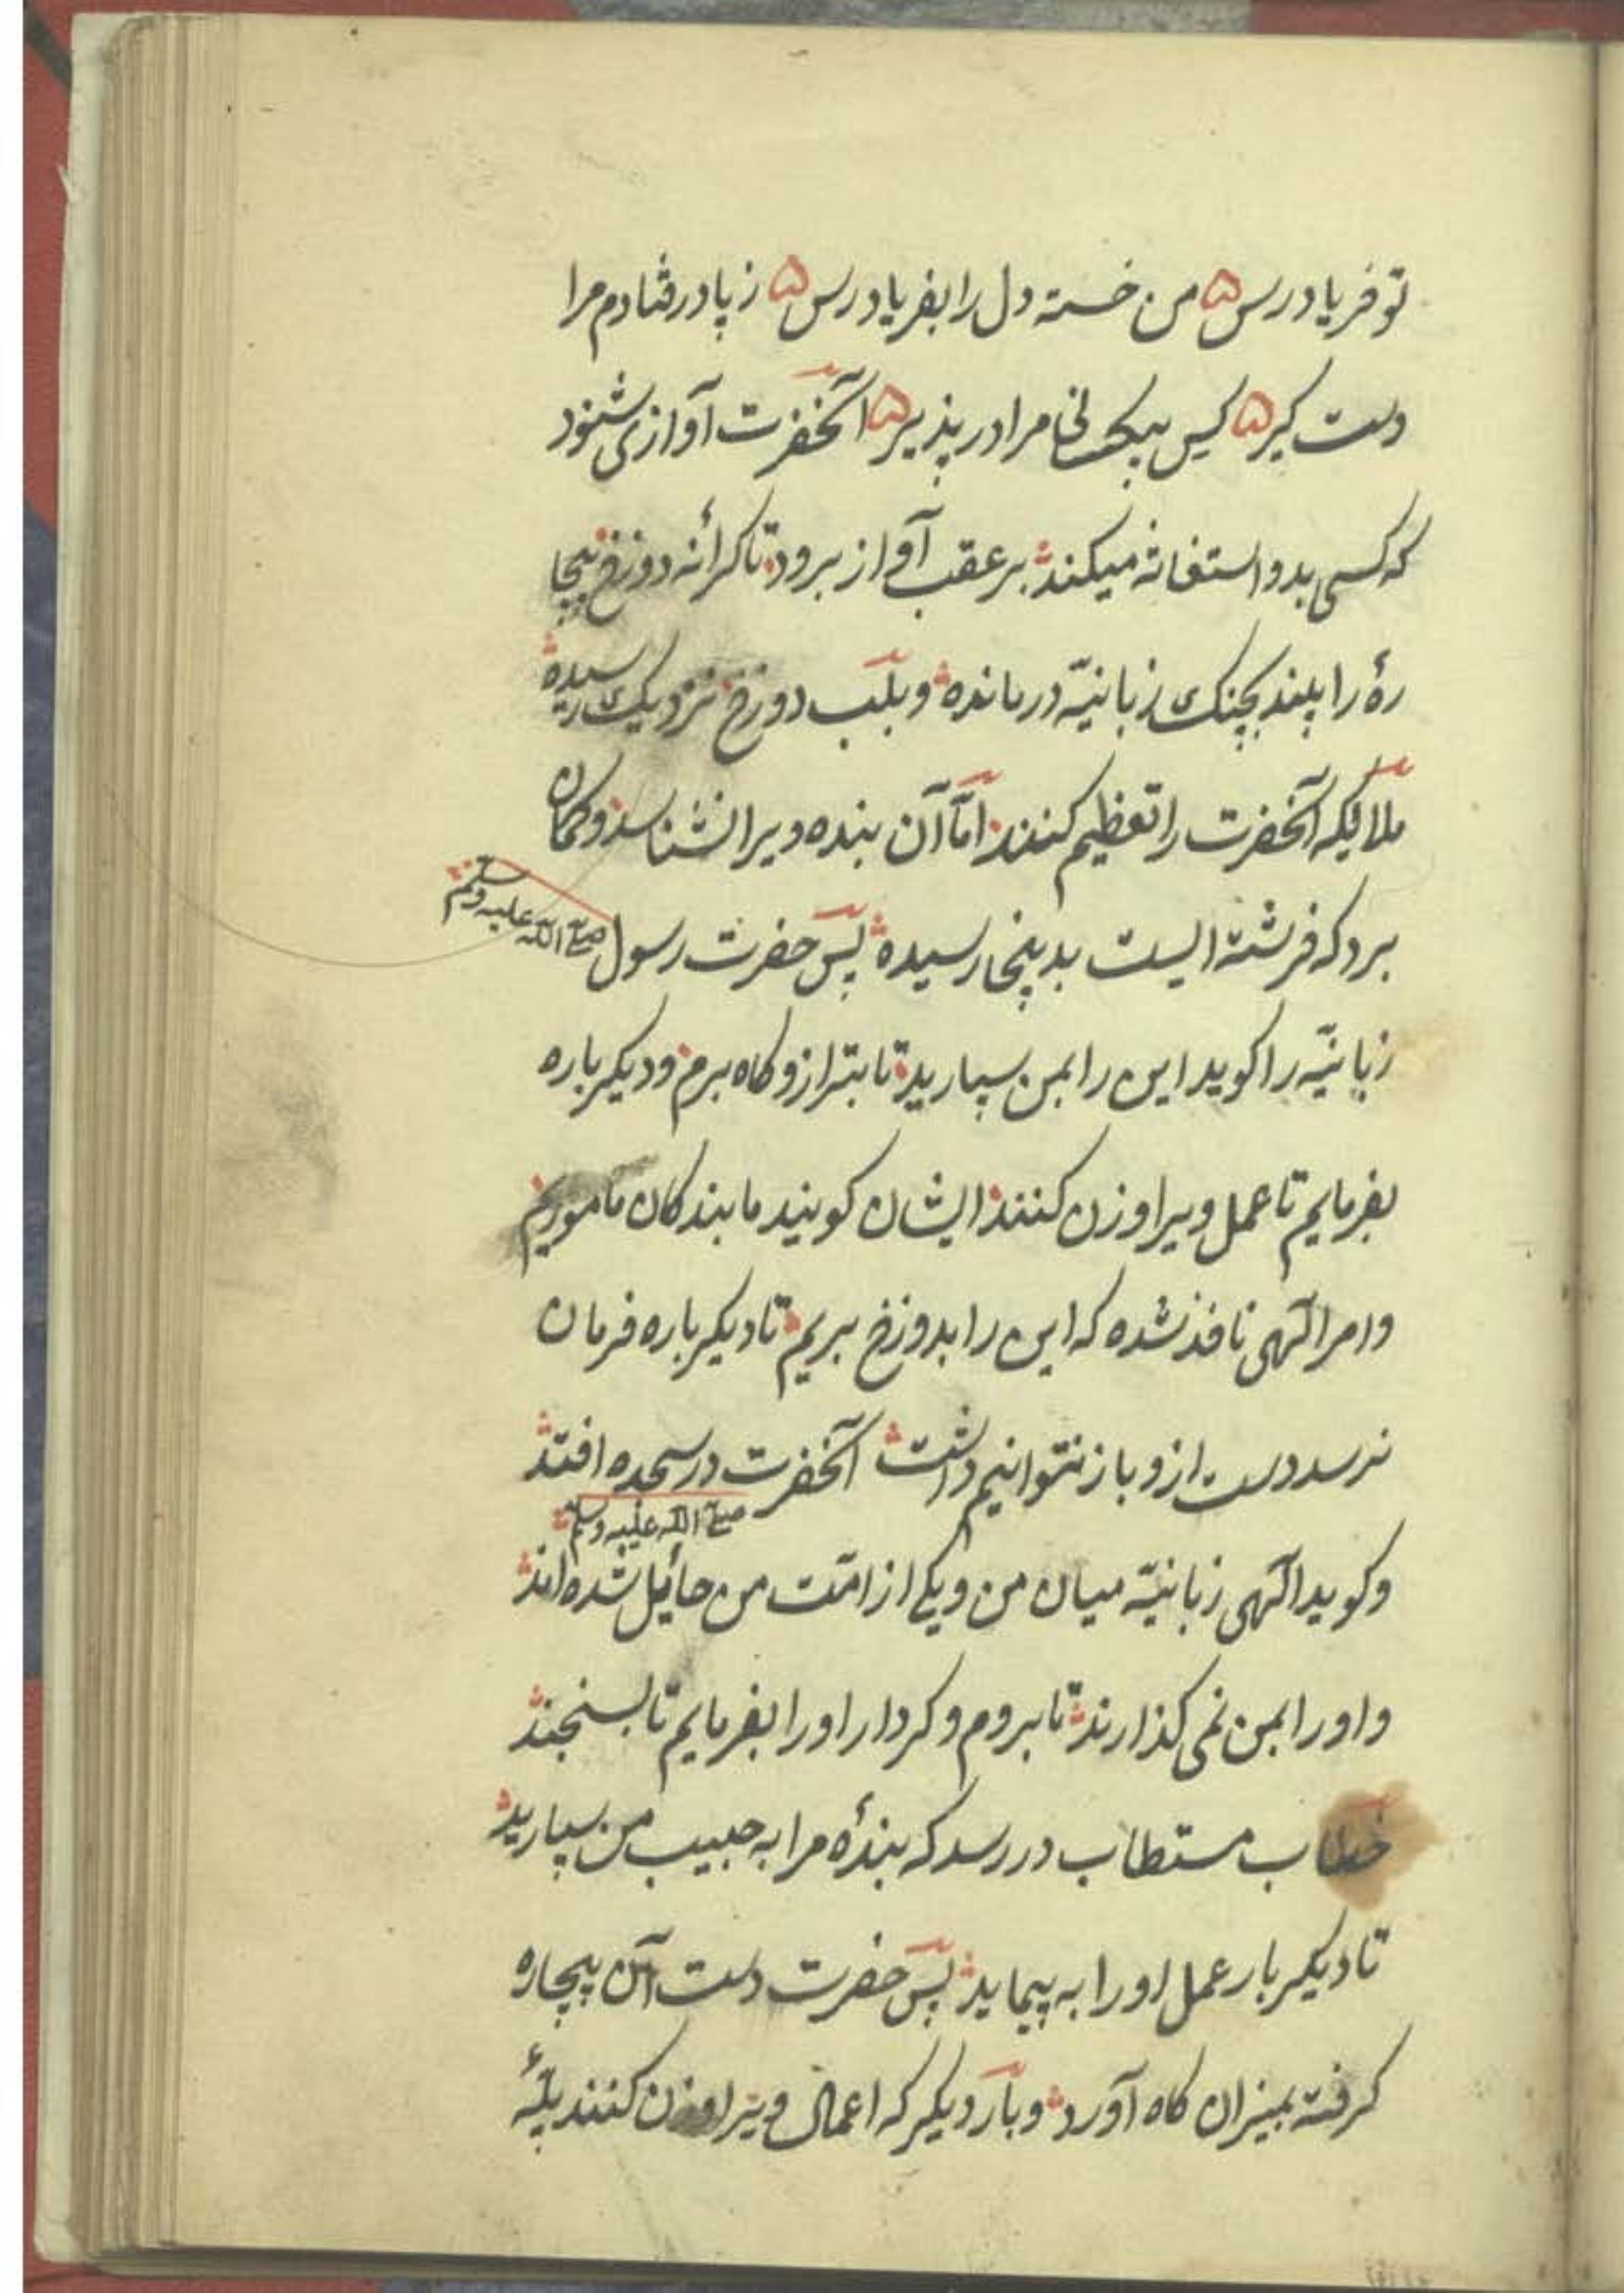 تو فریادرس ۵ من خسته دل را بفریادرس ۵ ز پا درفتادم مرا
دست کیر ۵ کس بیکسانی مرا درپذیر ۵ آنحضرت آوازی شنود
که کسی بدو استغاثه میکند بر عقب آواز برود تا کرانهٔ دوزخ بیچا
رهٔ را بیند بچنک زبانیّه درمانده و بلب دوزخ نزدیک رسیده
ملائیکه آنحضرت را تعظیم کنند امّا آن بنده ویرا نشناسد و کمان
برد که فرشته ایست بدینجا رسیده پس حضرت رسول صلی الله علیه وسلم
زبانیّه را کوید این را بمن سپارید تا بترازوکاه برم و دیکرباره
بفرمایم تا عمل ویرا وزن کنند ایشان کویند ما بندکان مأموریم
و امر الهی نافذ شده که این را بدوزخ بریم تا دیکرباره فرمان
نرسد دست ازو باز نتوانیم داشت آنحضرت در سجده افتد
صلی الله علیه وسلم
و کوید الهی زبانیّه میان من و یکی از امّت من حائیل شده اند
و اورا بمن نمی کذارند تا بروم و کردار اورا بفرمایم تا بسنجند
خطاب مستطاب دررسد که بندهٔ مرا به حبیب من سپارید
تا دیکربار عمل اورا به پیماید پس حضرت دست آن بیچاره
کرفته بمیزان کاه آورد و بار دیکر که اعمال ویرا وزن کنند پلّهٔ